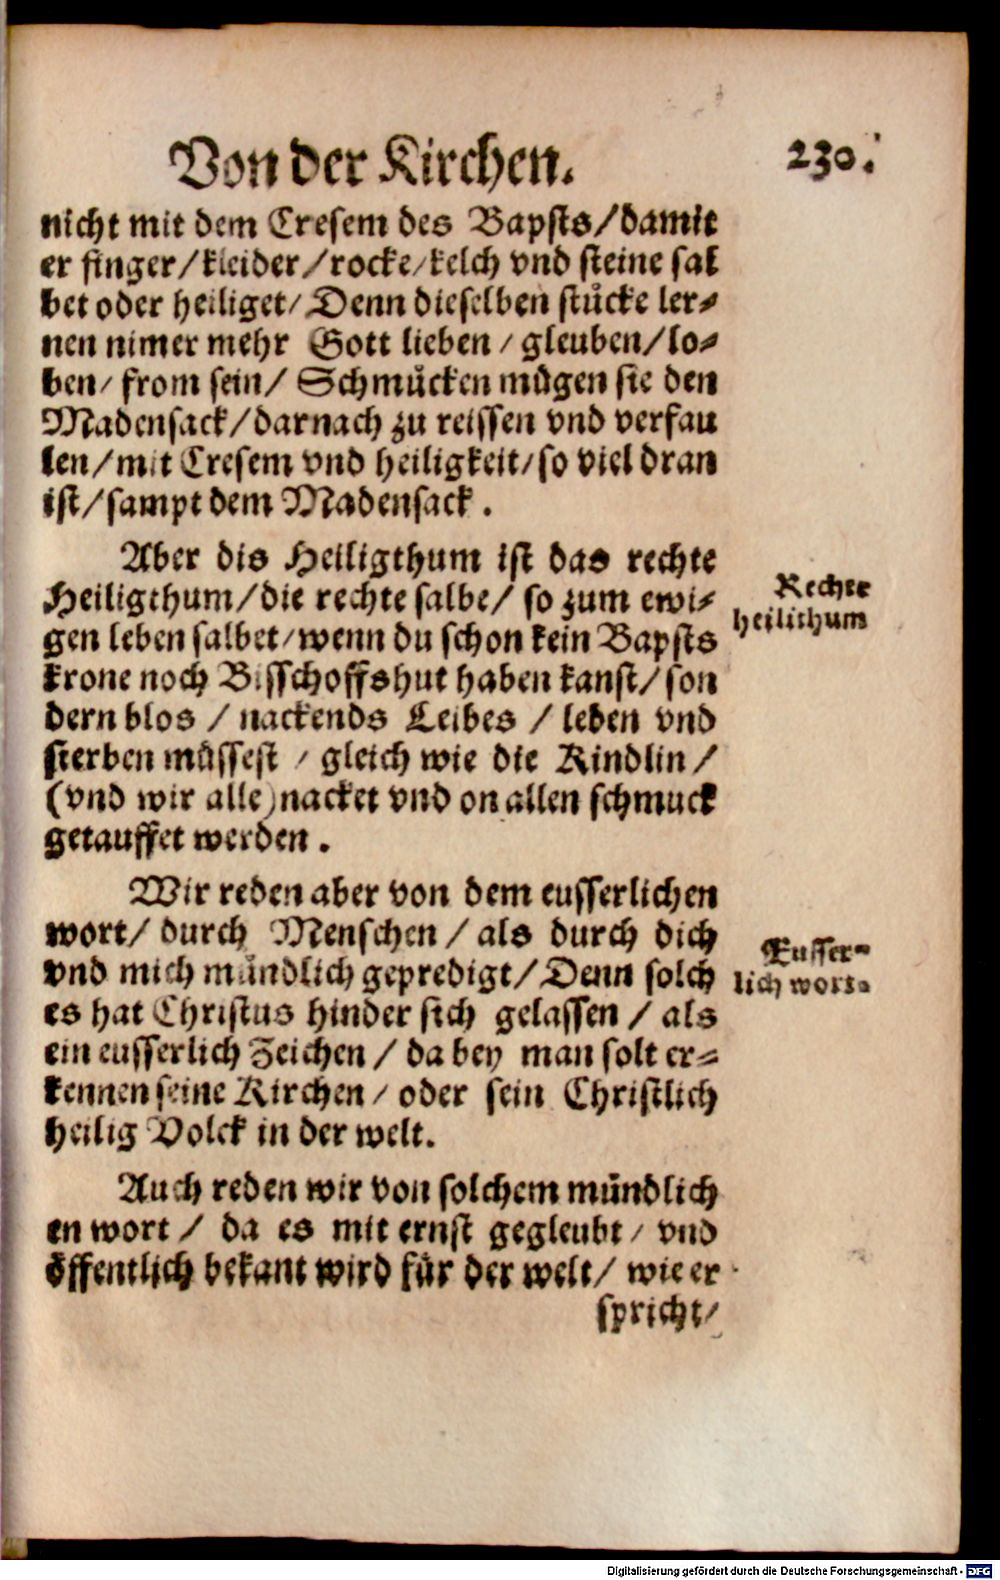 Von der Kirchen.
230.
nicht mit dem Cresem des Bapsts/damit
er finger/kleider/rocke/kelch vnd steine sal
bet oder heiliget/Denn dieselben stücke ler-
nen nimer mehr Gott lieben/gleuben/lo-
ben/from sein/Schmücken mügen sie den
Madensack/darnach zu reissen vnd verfau
len/mit Cresem vnd heiligkeit/so viel dran
ist/sampt dem Madensack.
Aber dis Heiligthum ist das rechte
Heiligthum/die rechte salbe/so zum ewi-
gen leben salbet/wenn du schon kein Bapsts
krone noch Bisschoffshut haben kanst/son
dern blos/nackends Leibes/leben vnd
sterben müssest/gleich wie die Kindlin/
(vnd wir alle)nacket vnd on allen schmuck
getauffet werden.
Rechte
heilithum
Wir reden aber von dem eusserlichen
wort/durch Menschen/als durch dich
vnd mich mündlich gepredigt/Denn solch
es hat Christus hinder sich gelassen/als
ein eusserlich Zeichen/da bey man solt er-
kennen seine Kirchen/oder sein Christlich
heilig Volck in der welt.
Eusser-
lich wort.
Auch reden wir von solchem mündlich
en wort/da es mit ernst gegleubt/vnd
öffentlich bekant wird für der welt/wie er
spricht/
Digitalisierung gefördert durch die Deutsche Forschungsgemeinschaft - DFG